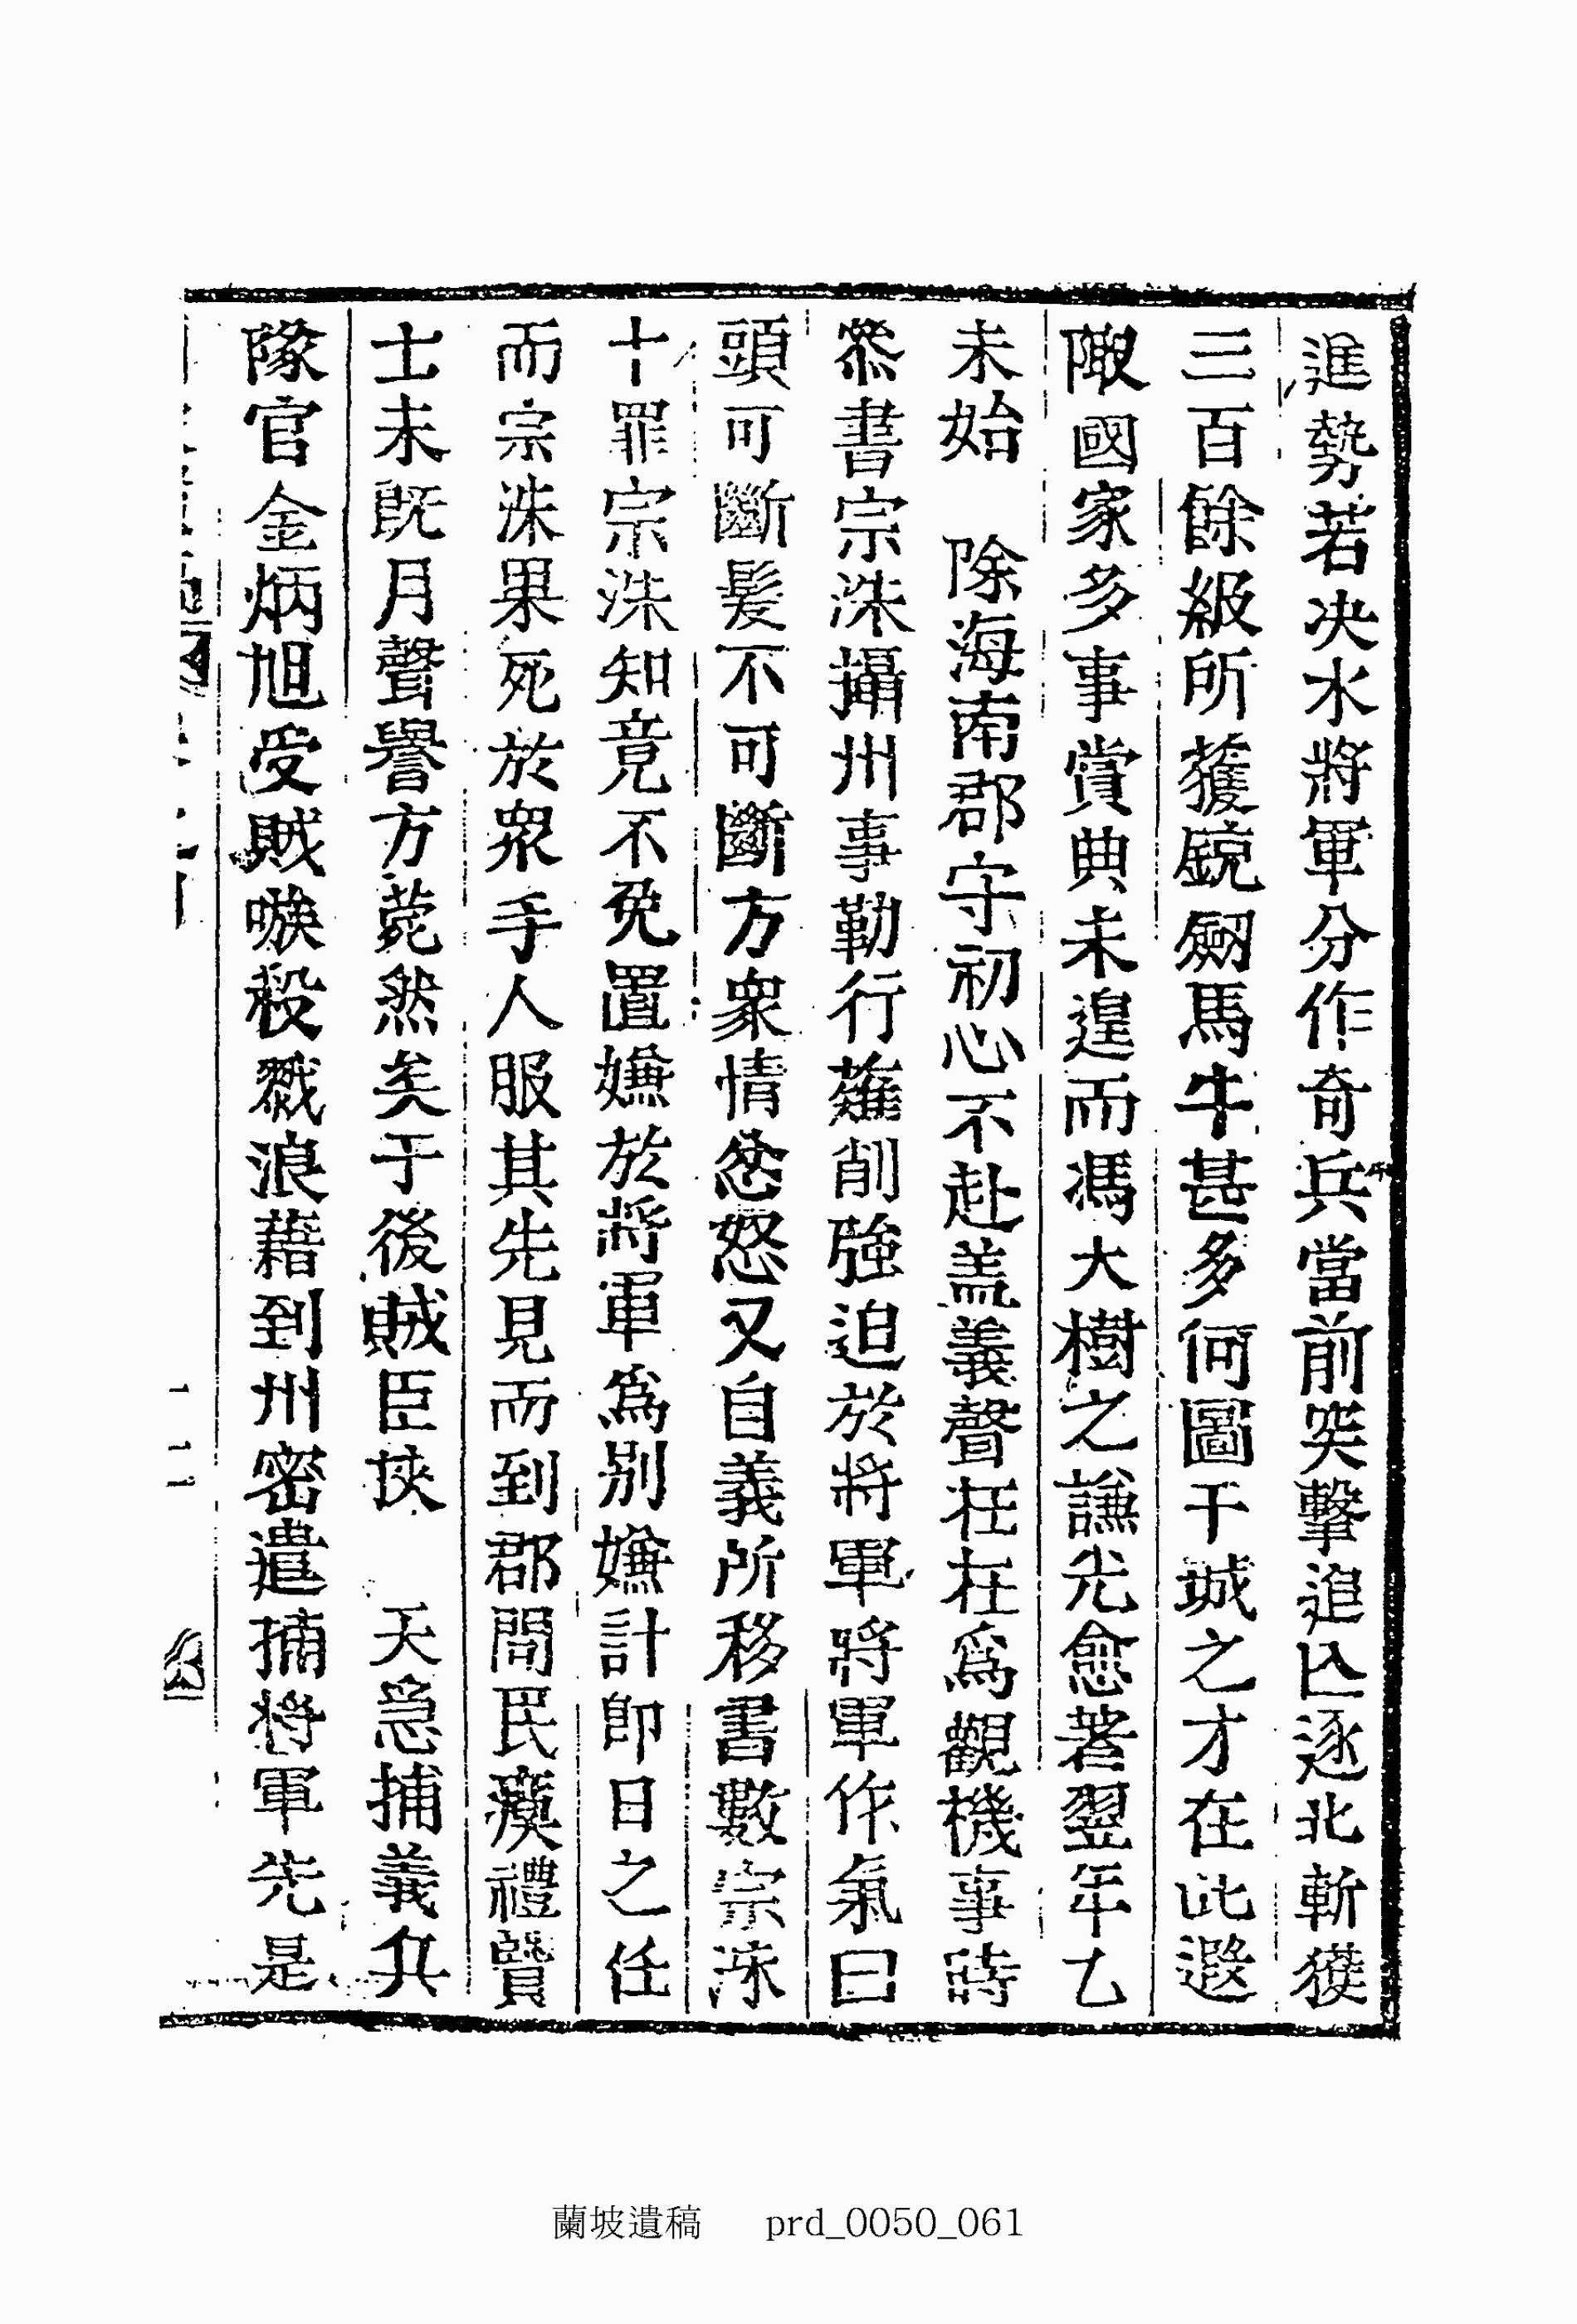 進勢若决水將軍分作奇兵當前突擊追亾逐北斬獲
三百餘級所獲銃劒馬牛甚多何圖干城之才在此遐
陬國家多事賞典未遑而馮大樹之謙光愈著翌年乙
未始 除海南郡守初心不赴盖義聲在在爲觀機事時
叅書宗洙攝州事勒行薙削強迫於將軍將軍作氣曰
頭可斷髮不可斷方衆情忿怒又自義所移書數宗洙
十罪宗洙知竟不免置嫌於將軍爲别嫌計卽日之任
而宗洙果死於衆手人服其先見而到郡問民瘼禮賢
士未旣月聲譽方菀然矣于後賊臣挾 天急捕義兵
隊官金炳旭受賊嗾殺戮浪藉到州密遣捕將軍先是
蘭坡遺稿 prd_0050_061